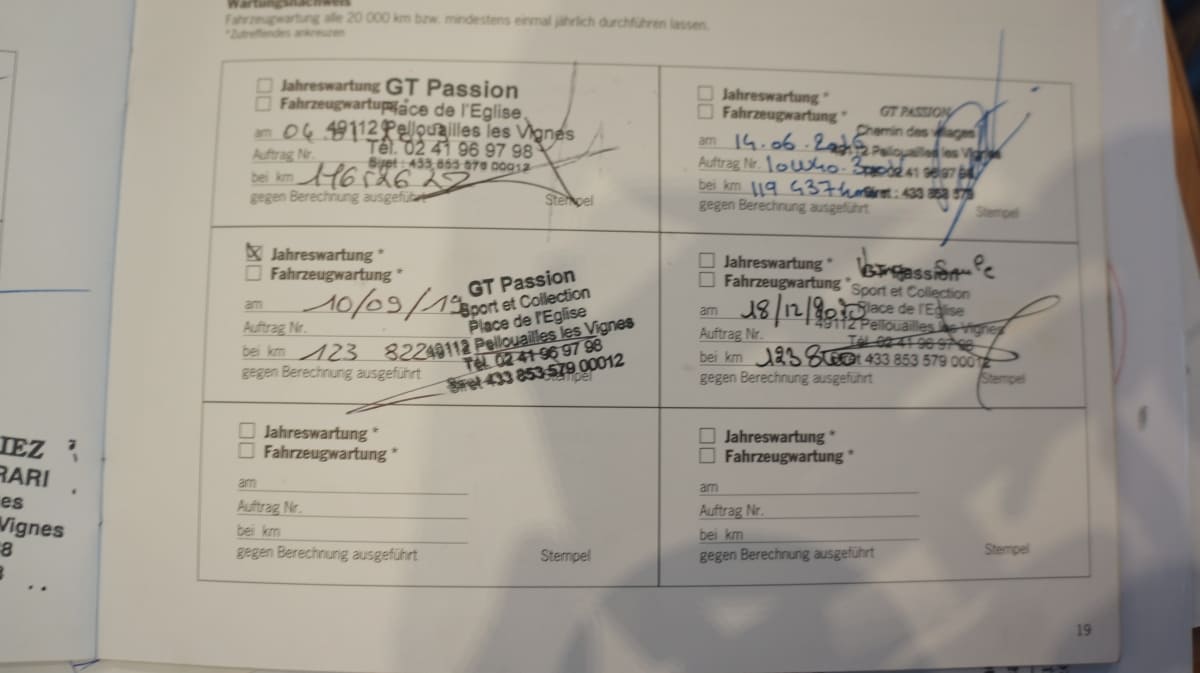 Wartungsnachweis
Fahrzeugwartung alle 20 000 km bzw. mindestens einmal jährlich durchführen lassen.
*Zutreffendes ankreuzen
Jahreswartung
GT Passion
Fahrzeugwartung
Place de l'Eglise
am 04
49112 Pellouailles les Vignes
Auftrag Nr.
Tél. 02 41 96 97 98
Siret : 433 853 579 00012
bei km
gegen Berechnung ausgeführt
Stempel
Jahreswartung *
Fahrzeugwartung *
GT PASSION
Chemin des villages
am 14.06.
49112 Pellouailles les Vignes
Auftrag Nr. 10W40
02 41 96 97 98
bei km 119 437 km
Siret : 433 853 579
gegen Berechnung ausgeführt
Stempel
Jahreswartung *
Fahrzeugwartung *
am 10/09/19
Auftrag Nr.
bei km 123 822
gegen Berechnung ausgeführt
GT Passion
Sport et Collection
Place de l'Eglise
49112 Pellouailles les Vignes
Tél. 02 41 96 97 98
Siret 433 853 579 00012
Stempel
Jahreswartung *
Fahrzeugwartung *
GT Passion
Sport et Collection
Place de l'Eglise
am 18/12/
49112 Pellouailles les Vignes
Auftrag Nr.
Tél. 02 41 96 97 98
bei km
Siret 433 853 579 00012
gegen Berechnung ausgeführt
Stempel
Jahreswartung *
Fahrzeugwartung *
am
Auftrag Nr.
bei km
gegen Berechnung ausgeführt
Stempel
Jahreswartung *
Fahrzeugwartung *
am
Auftrag Nr.
bei km
gegen Berechnung ausgeführt
Stempel
19
IEZ
RARI
es
Vignes
8